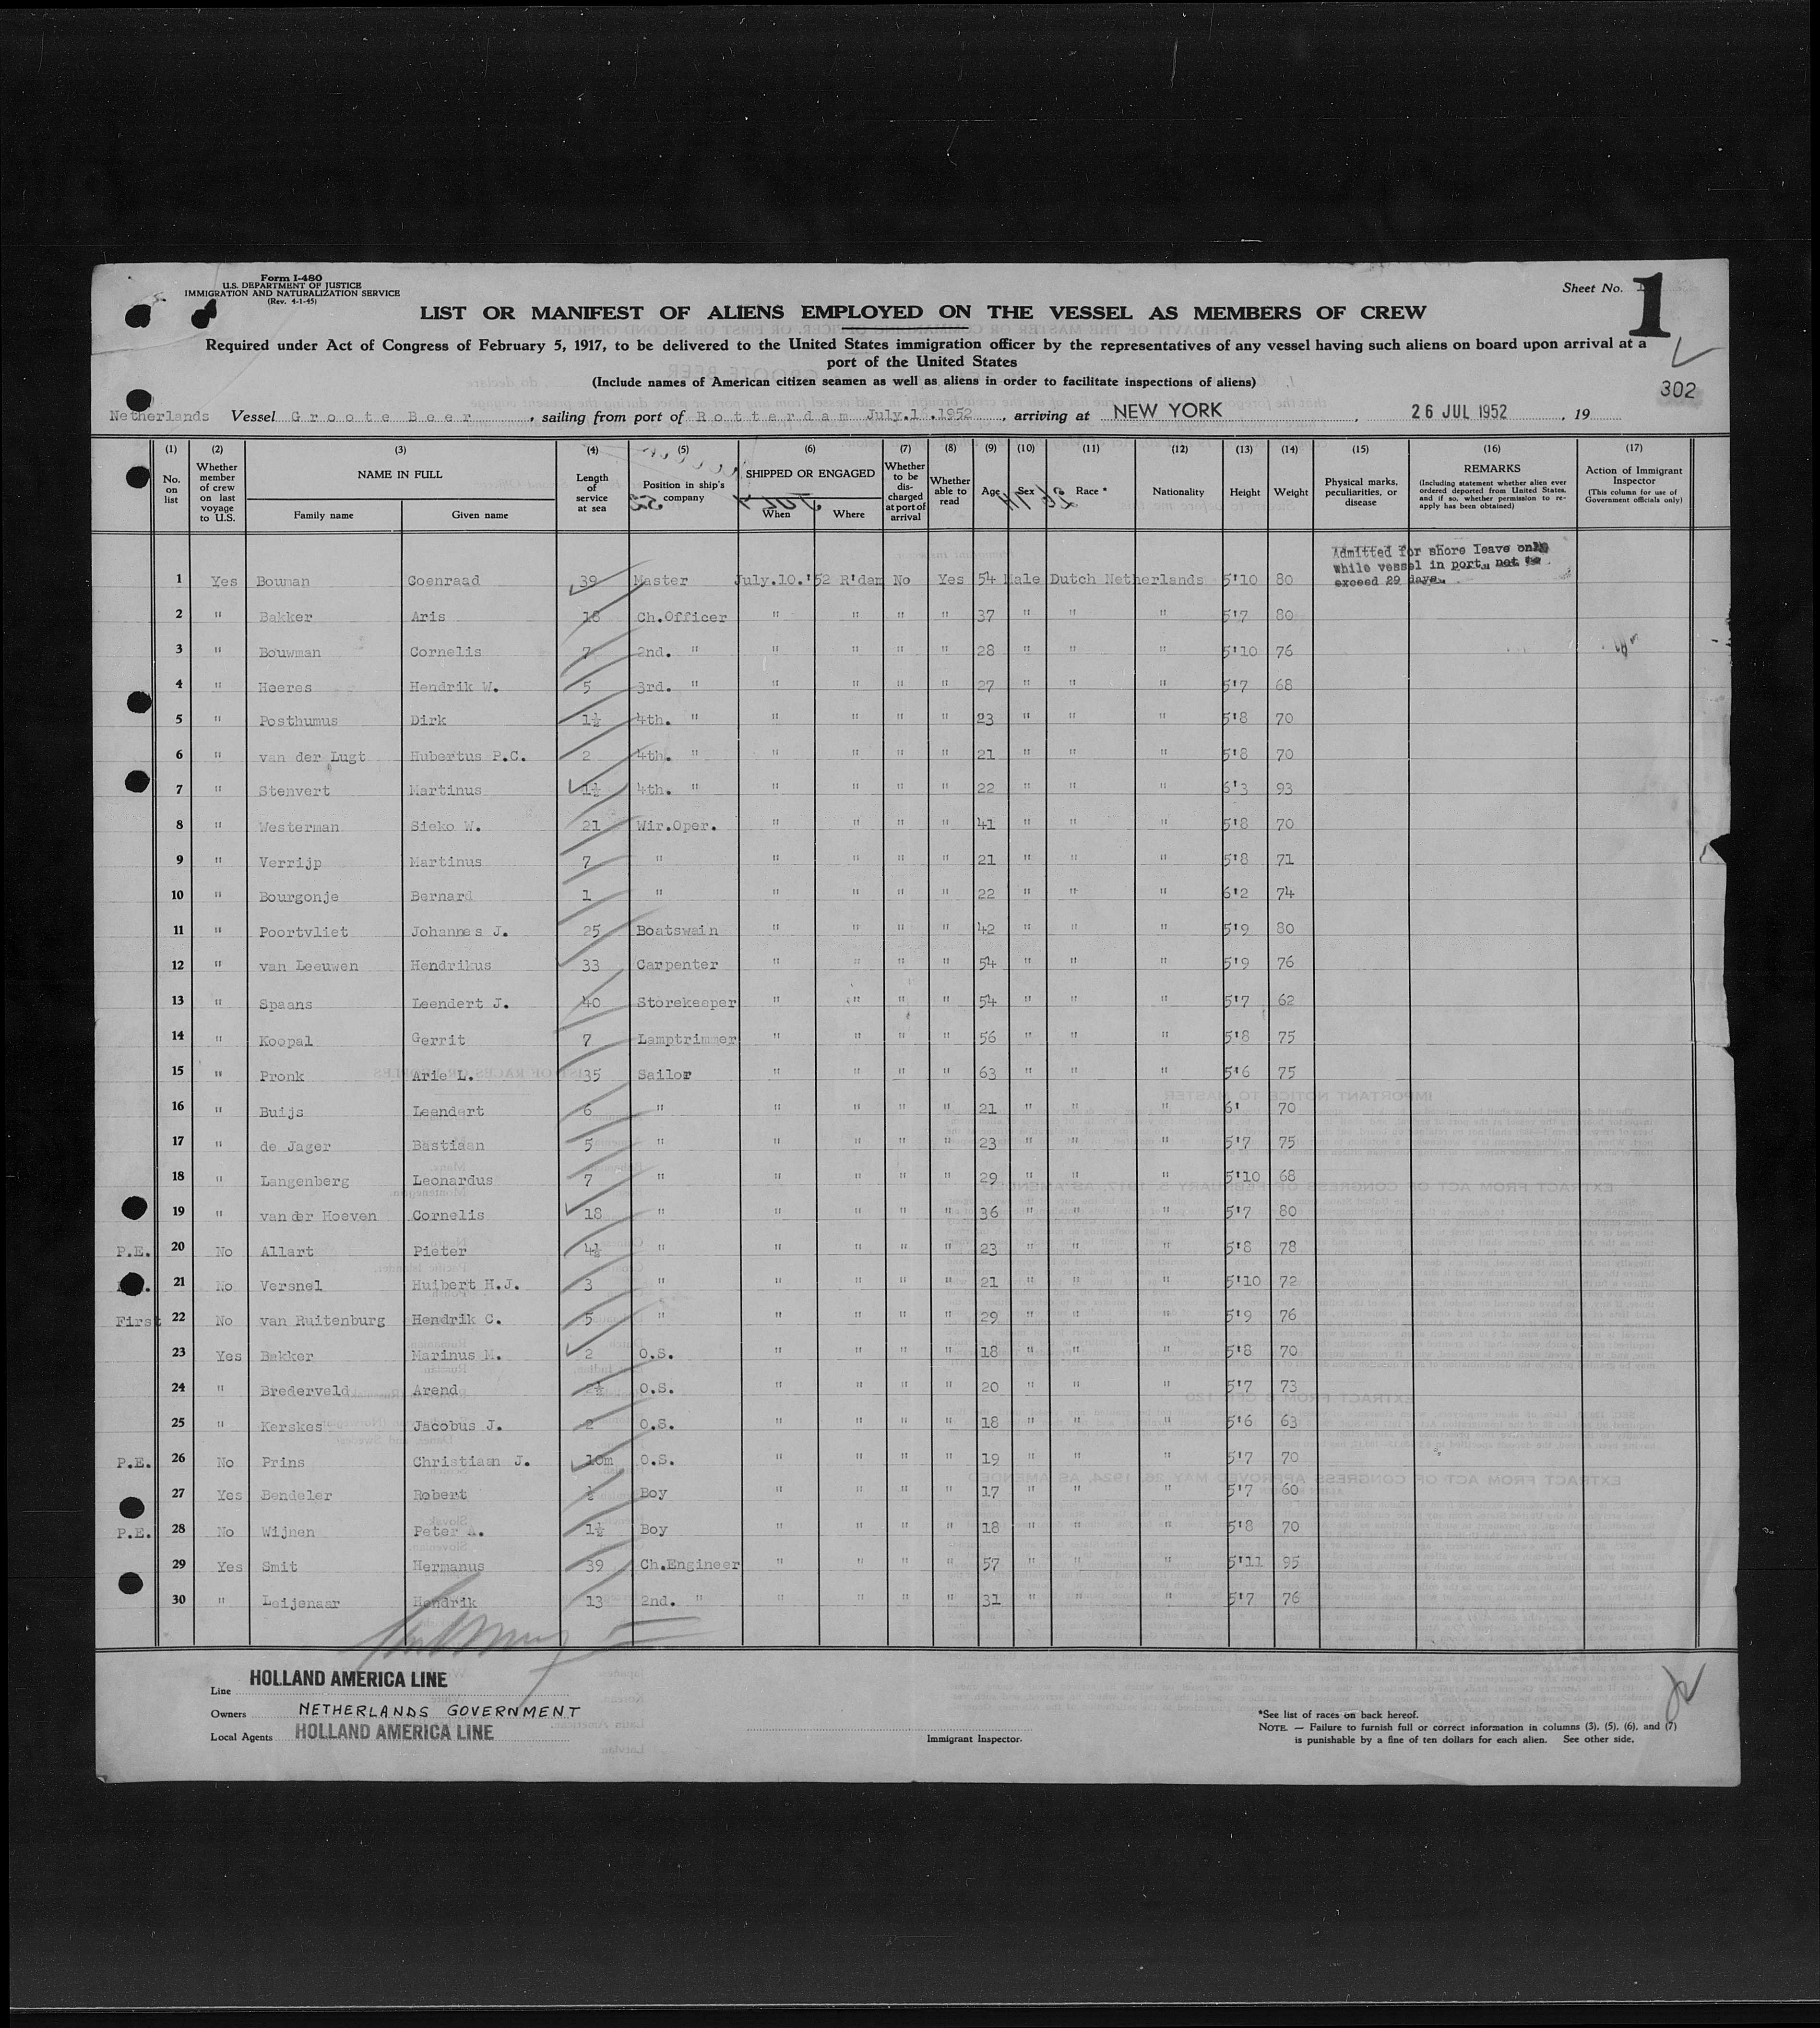 Form I-480
U.S. DEPARTMENT OF JUSTICE
IMMIGRATION AND NATURALIZATION SERVICE
(Rev. 4-1-45)
Sheet No. 1
1
LIST OR MANIFEST OF ALIENS EMPLOYED ON THE VESSEL AS MEMBERS OF CREW
Required under Act of Congress of February 5, 1917, to be delivered to the United States immigration officer by the representatives of any vessel having such aliens on board upon arrival at a
port of the United States
(Include names of American citizen seamen as well as aliens in order to facilitate inspections of aliens)
302
Netherlands Vessel Groote Beer, sailing from port of Rotterdam July.1 .1952, arriving at NEW YORK, 26 JUL 1952, 19
(1) (2) (3) (4) (5) (6) (7) (8) (9) (10) (11) (12) (13) (14) (15) (16) (17)
No. on list Whether member of crew on last voyage to U.S. NAME IN FULL Family name Given name Length of service at sea Position in ship's company SHIPPED OR ENGAGED When Where Whether to be discharged at port of arrival Whether able to read Age Sex Race * Nationality Height Weight Physical marks, peculiarities, or disease REMARKS (Including statement whether alien ever ordered deported from United States, and if so, whether permission to re-apply has been obtained) Action of Immigrant Inspector (This column for use of Government officials only)
Admitted for shore leave only
while vessel in port, not to
exceed 29 days.
1 Yes Bouman Coenraad 39 Master July.10.'52 R'dam No Yes 54 Male Dutch Netherlands 5'10 80
2 " Bakker Aris 18 Ch.Officer " " " " 37 " " " 5'7 80
3 " Bouwman Cornelis 7 2nd. " " " " " 28 " " " 5'10 76
4 " Heeres Hendrik W. 5 3rd. " " " " " 27 " " " 5'7 68
5 " Posthumus Dirk 1½ 4th. " " " " " 23 " " " 5'8 70
6 " van der Lugt Hubertus P.C. 2 4th. " " " " " 21 " " " 5'8 70
7 " Stenvert Martinus 1½ 4th. " " " " " 22 " " " 6'3 93
8 " Westerman Sieko W. 21 Wir.Oper. " " " " 41 " " " 5'8 70
9 " Verrijp Martinus 7 " " " " " 21 " " " 5'8 71
10 " Bourgonje Bernard 1 " " " " " 22 " " " 6'2 74
11 " Poortvliet Johannes J. 25 Boatswain " " " " 42 " " " 5'9 80
12 " van Leeuwen Hendrikus 33 Carpenter " " " " 54 " " " 5'9 76
13 " Spaans Leendert J. 40 Storekeeper " " " " 54 " " " 5'7 62
14 " Koopal Gerrit 7 Lamptrimmer " " " " 56 " " " 5'8 75
15 " Pronk Arie L. 35 Sailor " " " " 63 " " " 5'6 75
16 " Buijs Leendert 6 " " " " " 21 " " " 6' 70
17 " de Jager Bastiaan 5 " " " " " 23 " " " 5'7 75
18 " Langenberg Leonardus 7 " " " " " 29 " " " 5'10 68
19 " van der Hoeven Cornelis 18 " " " " " 36 " " " 5'7 80
P.E. 20 No Allart Pieter 4½ " " " " " 23 " " " 5'8 78
21 No Versnel Huibert H.J. 3 " " " " " 21 " " " 5'10 72
First 22 No van Ruitenburg Hendrik C. 5 " " " " " 29 " " " 5'9 76
23 Yes Bakker Marinus M. 2 O.S. " " " " 18 " " " 5'8 70
24 " Brederveld Arend 2½ O.S. " " " " 20 " " " 5'7 73
25 " Kerskes Jacobus J. 2 O.S. " " " " 18 " " " 5'6 63
P.E. 26 No Prins Christiaan J. 10m O.S. " " " " 19 " " " 5'7 70
27 Yes Bendeler Robert ½ Boy " " " " 17 " " " 5'7 60
P.E. 28 No Wijnen Peter A. 1½ Boy " " " " 18 " " " 5'8 70
29 Yes Smit Hermanus 39 Ch.Engineer " " " " 57 " " " 5'11 95
30 " Leijenaar Hendrik 13 2nd. " " " " " 31 " " " 5'7 76
Line HOLLAND AMERICA LINE
Owners NETHERLANDS GOVERNMENT
Local Agents HOLLAND AMERICA LINE
Immigrant Inspector.
*See list of races on back hereof.
NOTE. — Failure to furnish full or correct information in columns (3), (5), (6), and (7)
is punishable by a fine of ten dollars for each alien. See other side.